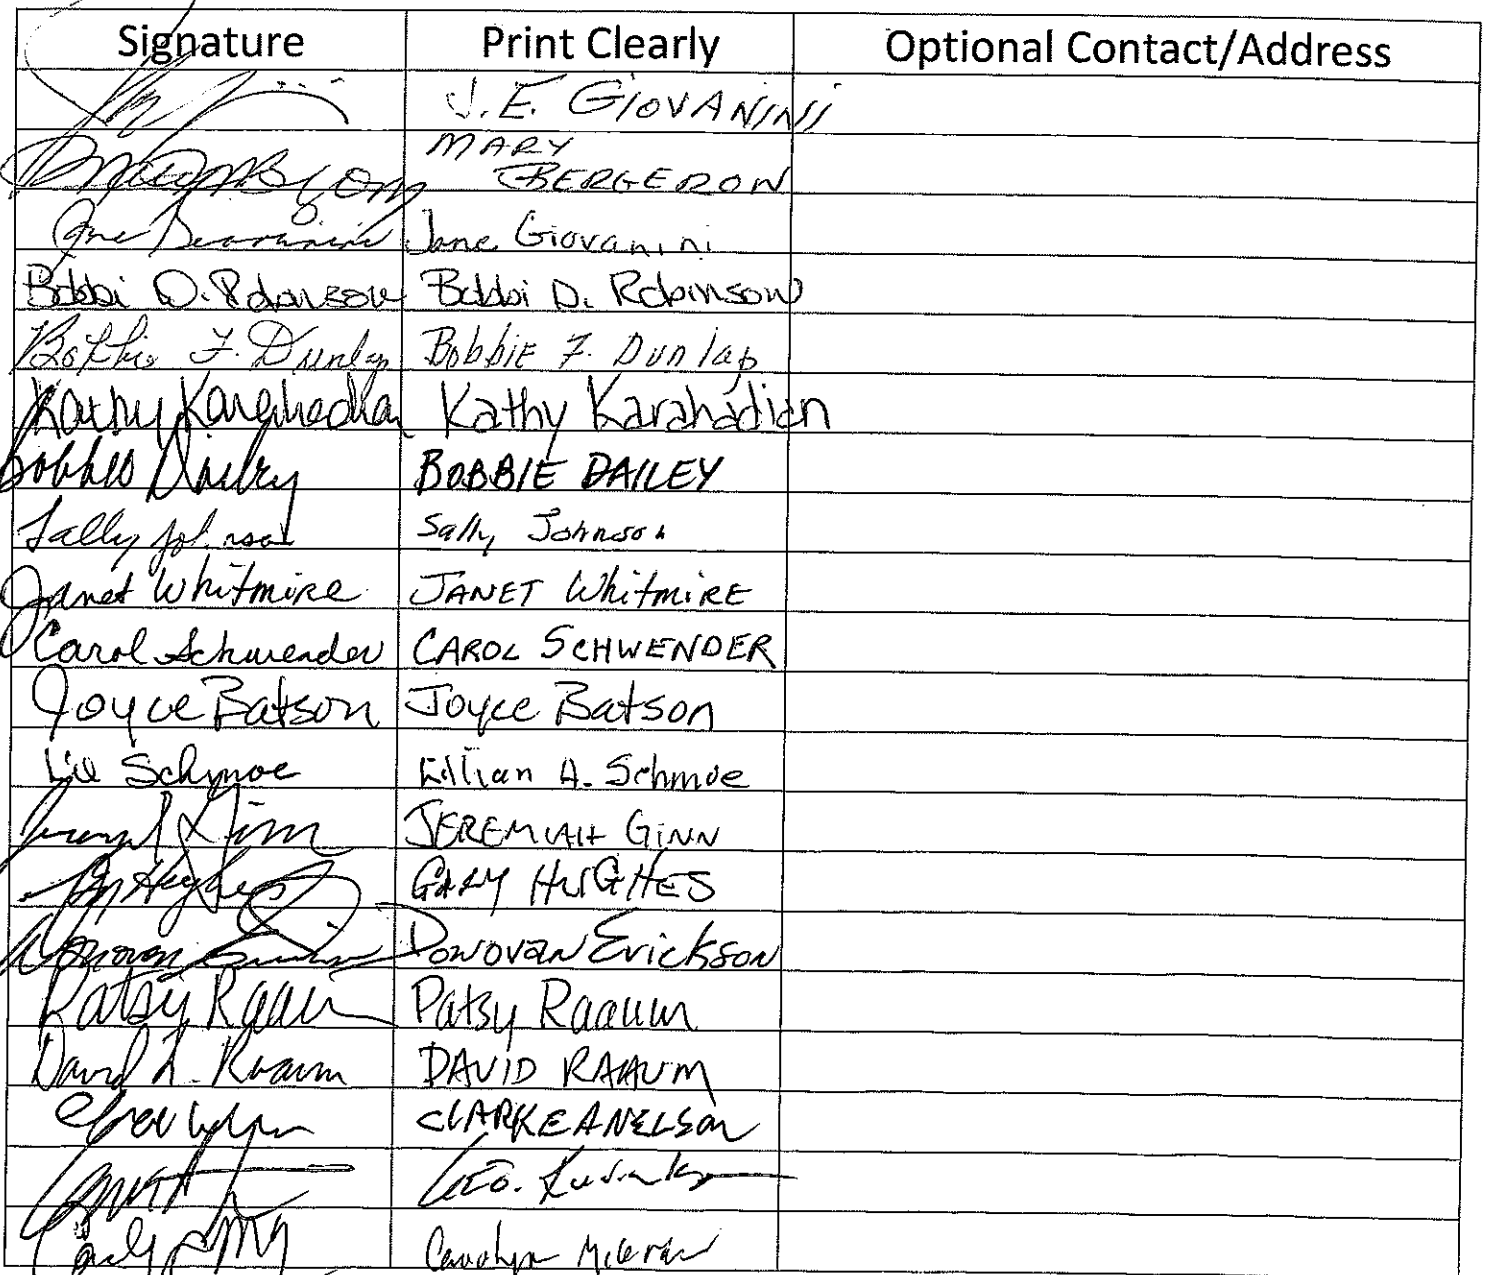 Signature Print Clearly Optional Contact/Address
J.E. GIOVANINI
MARY
BERGERON
Jane Giovanini Jane Giovanini
Bobbi D. Robinson Bobbi D. Robinson
Bobbie F. Dunlap Bobbie F. Dunlap
Kathy Karahadian Kathy Karahadian
Bobbie Dailey BOBBIE DAILEY
Sally Johnson Sally Johnson
Janet Whitmire JANET WhitmiRE
Carol Schwender CAROL SCHWENDER
Joyce Batson Joyce Batson
Lil Schmoe Lillian A. Schmoe
JEREMIAH GINN
Hughes GARY HUGHES
Donovan DONOVAN Erickson
Patsy Raaum Patsy Raaum
David L. Raaum DAVID RAAUM
CLARKE A NELSON
GEO.
Carolyn